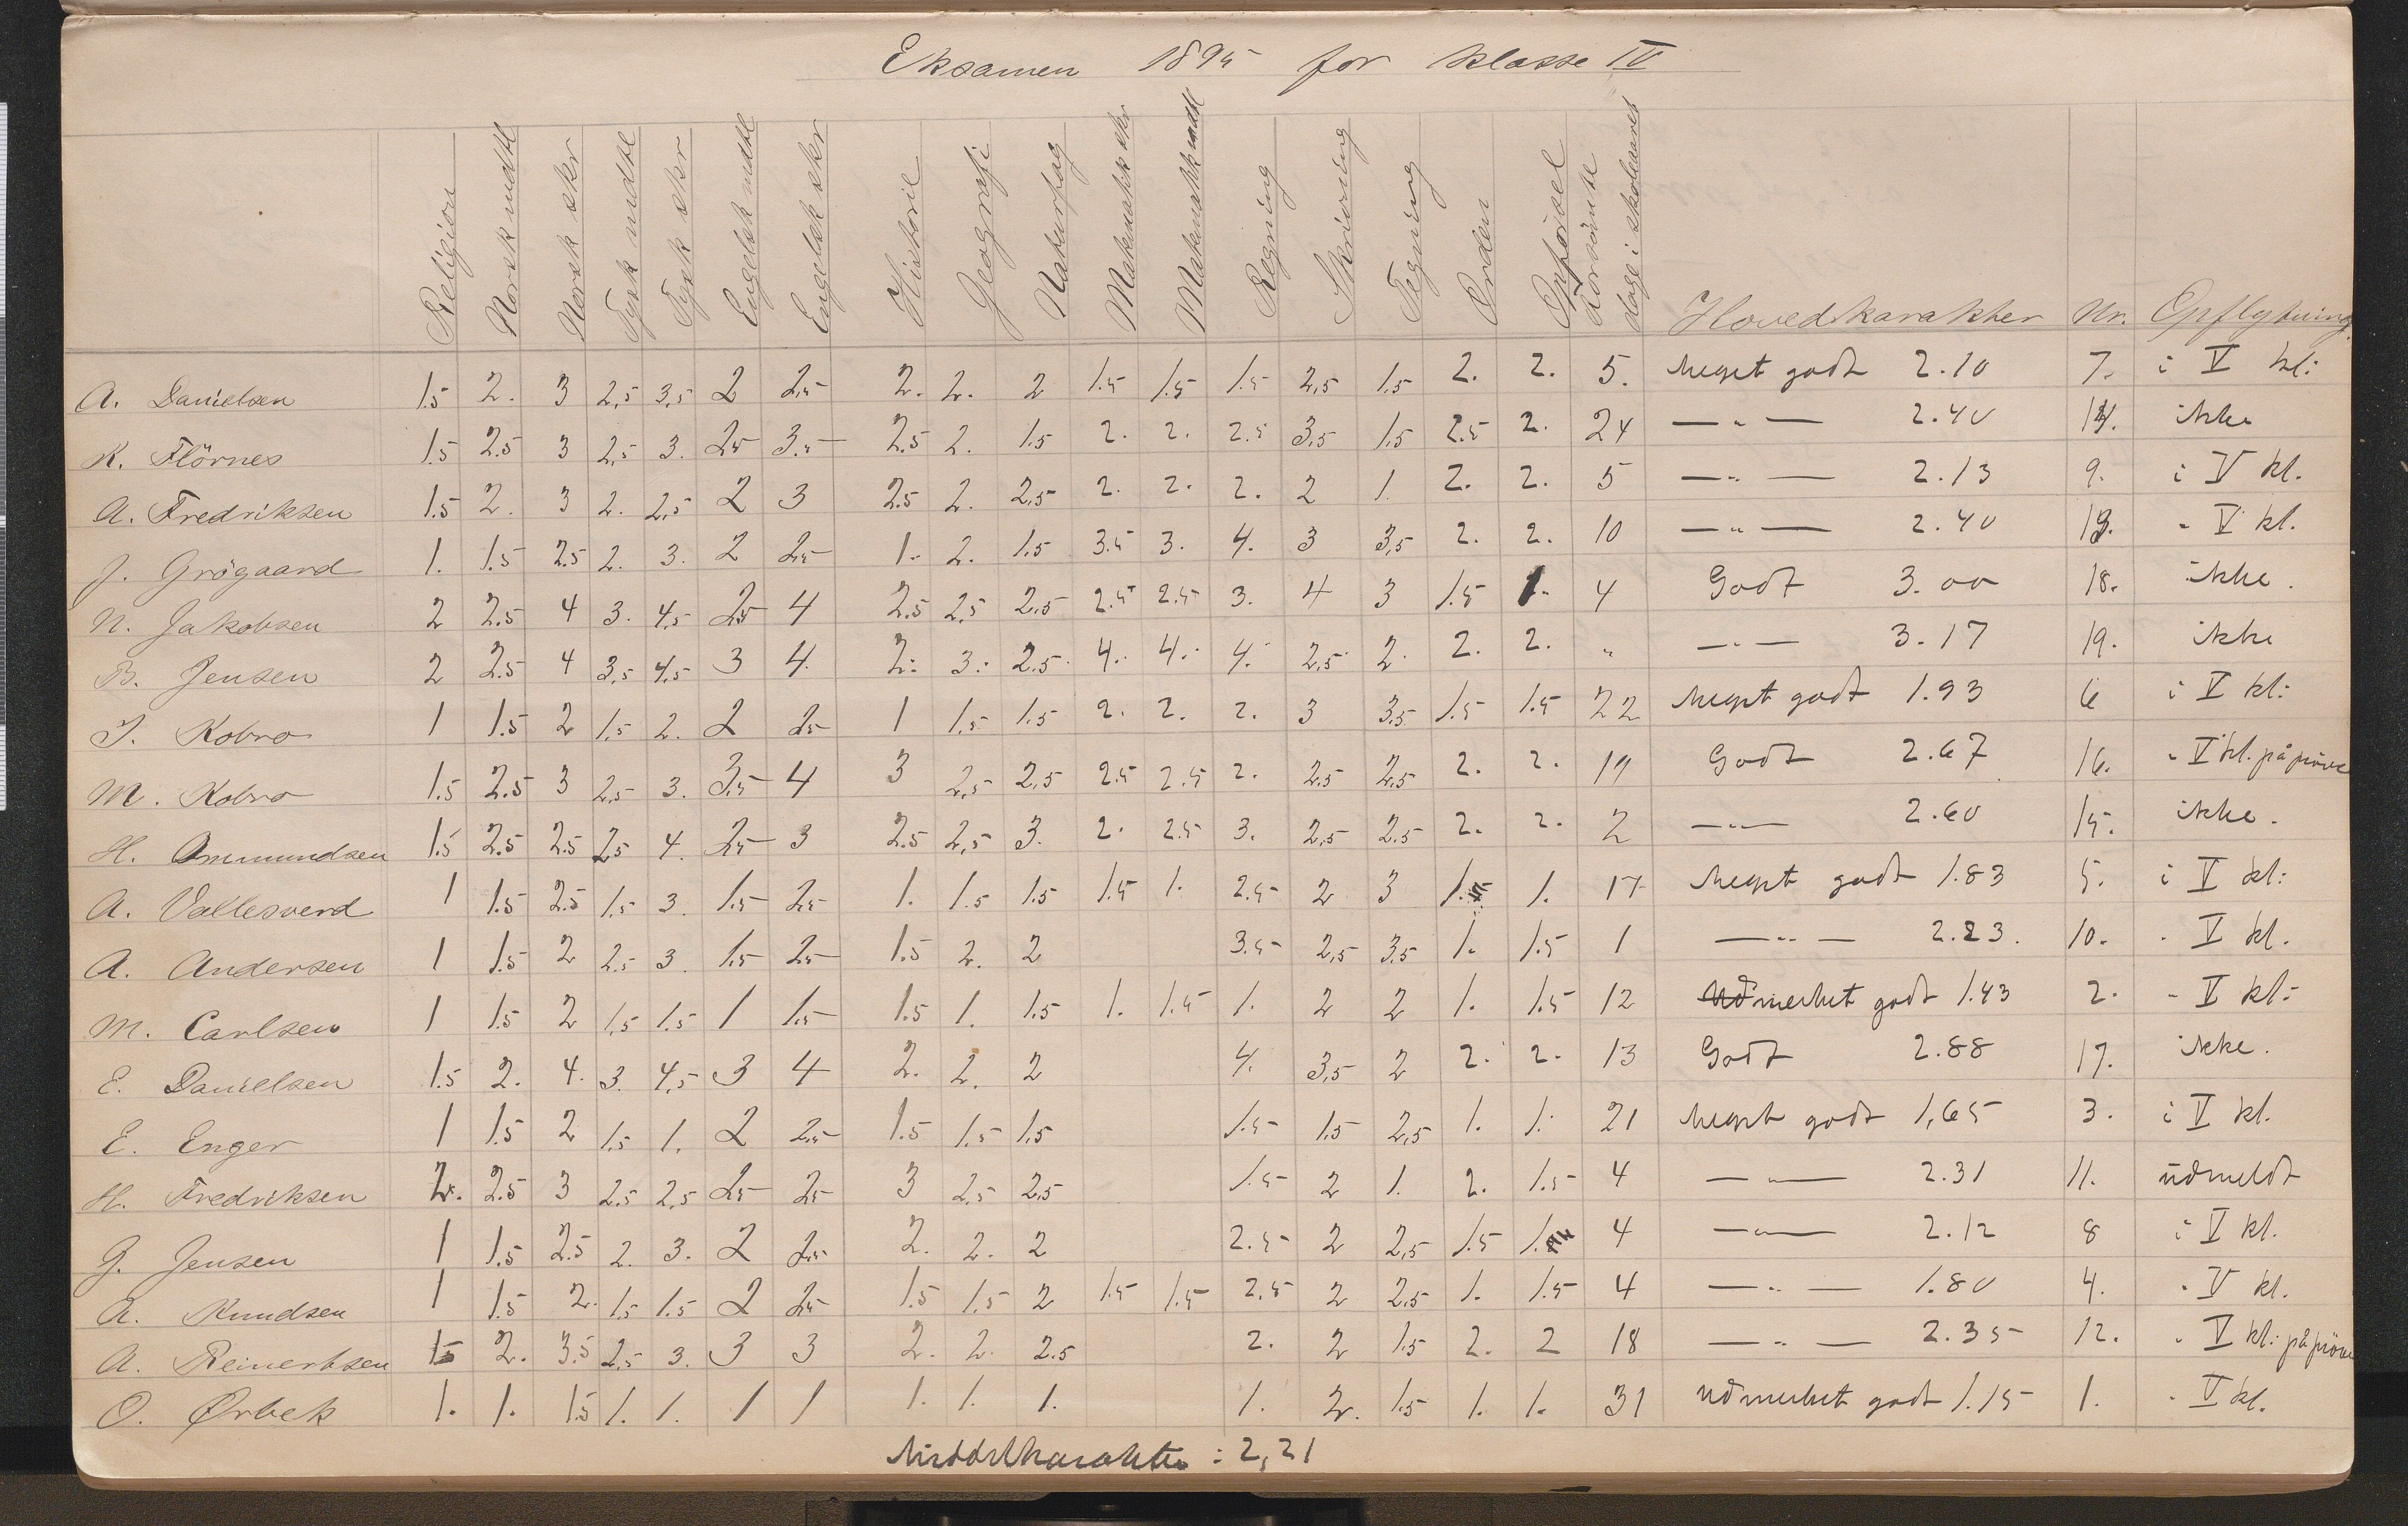 Eksamen 1895 for klasse IV
Religion Norsk mdtl Norsk skr Tysk mdtl Tysk skr Engelsk mdtl Engelsk skr Historie Geografi Naturfag Matematikk skr Matematikk mdtl Regning Skrivning Tegning Orden Opførsel Forsömte dage i skoleaaret Hovedkarakter Nr. Opflytning
A. Danielsen 1.5 2. 3 2,5 3,5 2 2,5 2. 2. 2 1.5 1.5 1.5 2,5 1.5 2. 2. 5. Meget godt 2.10 7. i V kl:
K. Flörnes 1.5 2.5 3 2,5 3. 2,5 3.5 2.5 2. 1.5 2. 2. 2.5 3,5 1,5 2.5 2. 24 — " — 2.40 14. ikke
A. Fredriksen 1.5 2. 3 2. 2,5 2 3 2.5 2. 2,5 2. 2. 2. 2 1. 2. 2. 5 — " — 2.13 9. i V kl.
J. Grögaard 1. 1.5 2.5 2. 3. 2 2,5 1. 2. 1.5 3.5 3. 4. 3 3,5 2. 2. 10 — " — 2.40 13. " V kl.
N. Jakobsen 2 2.5 4 3. 4,5 2,5 4 2.5 2,5 2,5 2.5 2.5 3. 4 3 1.5 1. 4 Godt 3.00 18. ikke.
B. Jensen 2 2.5 4 3,5 4,5 3 4. 2. 3. 2.5 4. 4. 4. 2,5 2. 2. 2. " — " — 3.17 19. ikke
J. Kobro 1 1.5 2 1,5 2. 2 2,5 1 1,5 1.5 2. 2. 2. 3 3.5 1.5 1.5 22 Meget godt 1.93 6 i V kl:
M. Kobro 1.5 2.5 3 2,5 3. 3,5 4 3 2,5 2,5 2.5 2.5 2. 2.5 2,5 2. 2. 19 Godt 2.67 16. " V kl. på pröve
H. Ommundsen 1.5 2.5 2.5 2,5 4. 2,5 3 2.5 2,5 3. 2. 2.5 3. 2,5 2.5 2. 2. 2 — " — 2.60 15. ikke.
A. Vallesverd 1 1.5 2.5 1,5 3. 1.5 2,5 1. 1.5 1.5 1.5 1. 2.5 2 3 1. 1. 17 Meget godt 1.83 5. i V kl:
A. Andersen 1 1.5 2 2.5 3. 1.5 2,5 1.5 2. 2 3.5 2,5 3.5 1. 1.5 1 — " — 2.23. 10. " V kl.
M. Carlsen 1 1.5 2 1,5 1.5 1 1.5 1.5 1. 1.5 1. 1.5 1. 2 2 1. 1.5 12 Udmerket godt 1.43 2. " V kl:
E. Danielsen 1.5 2. 4. 3. 4,5 3 4 2. 2. 2 4. 3,5 2 2. 2. 13 Godt 2.88 17. ikke.
E. Enger 1 1.5 2 1,5 1. 2 2,5 1.5 1.5 1.5 1.5 1.5 2,5 1. 1. 21 Meget godt 1,65 3. i V kl.
H. Fredriksen 2. 2.5 3 2.5 2,5 2,5 2,5 3 2,5 2,5 1.5 2 1. 2. 1.5 4 — " — 2.31 11. udmeldt
G. Jensen 1 1.5 2.5 2. 3. 2 2,5 2. 2. 2 2.5 2 2,5 1.5 1. 4 — " — 2.12 8 i V kl.
A. Knudsen 1 1.5 2. 1.5 1.5 2 2,5 1.5 1.5 2 1.5 1.5 2,5 2 2,5 1. 1.5 4 — " — 1.80 4. " V kl.
A. Reinertsen 1.5 2. 3.5 2,5 3. 3 3 2. 2. 2.5 2. 2 1.5 2. 2 18 — " — 2.35 12. " V kl: på pröve
O. Ørbek 1. 1. 1.5 1. 1. 1 1 1. 1. 1. 1. 2. 1.5 1. 1. 31 Udmerket godt 1.15 1. " V kl.
Middelkarakter : 2,21